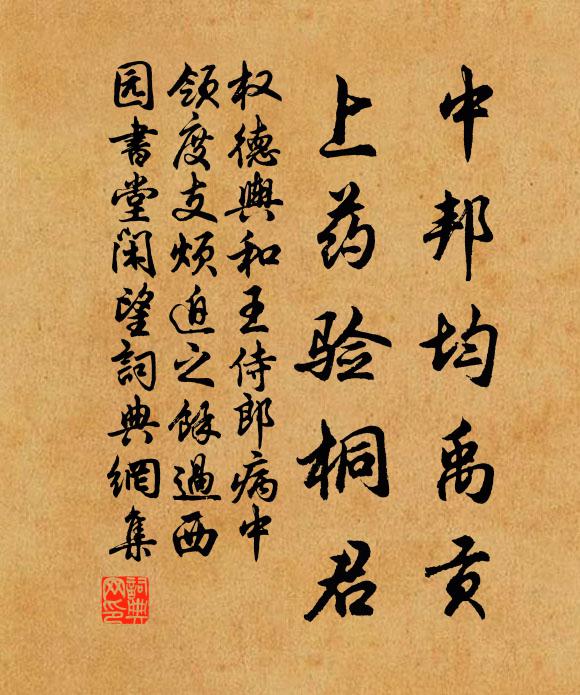 中邦均禹贡
上药验桐君
权德舆和王侍郎病中
领度支烦迫之馀过西
园书堂闲望词典網集
詞典
网印